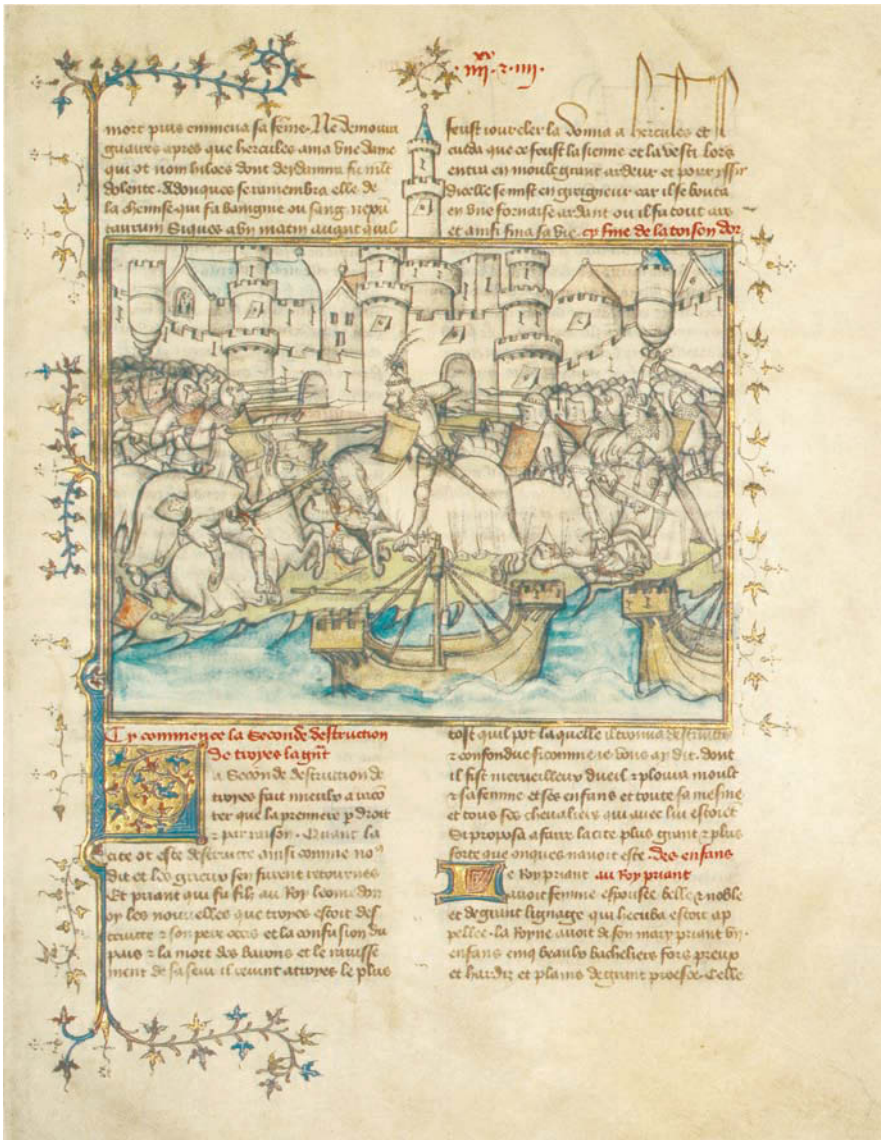 xx
iiii · z · iiii ·
mort puis enmena sa feme. Ne demoura
guaires apres que hercules ama vne dame
qui ot nom hiloes dont deydamia fu mlt
dolente. Adonques se ramembra elle de
la chemise qui fu baingnie ou sang
taurum Siques a vn matin auant quil
feust iour cler la donna a hercules et il
cuida que ce feust la sienne et la vesti lors
entra en moult grant ardeur et pour yssir
dicelle se mist en greigneur car il se bouta
en vne fornaise ardant ou il fu tout ars
et ainsi fina sa vie. cy fine de la toison dor
Cy commence la Seconde destruction
de troyes la grant
a Seconde destruction de
troyes fait mieulx a raco
ter que la premiere p droit
z par raison. Quant la
cite ot este destruite ainsi comme no9
dit et les grieux sen furent retournes
Et priant qui fu filz au Roy leomedon
oy les nouuelles que troyes estoit des
truitte z son pere occis et la confusion du
pais z la mort des barons et le rauisse
ment de sa seur il reuint a troyes le plus
tost quil pot laquelle il trouua destruite
z confondue si comme ie vous ay dit. dont
il fist merueilleux dueil z ploura moult
z sa femme et ses enfans et toute sa mesnie
et tous ses cheualiers qui auec lui estoiet
Si proposa a faire la cite plus grant z plus
forte que onques nauoit este. des enfans
e Roy priant au Roy priant
auoit femme espousee belle z noble
et de grant lignage qui hecuba estoit ap
pellee. la Royne auoit de son mary priant
enfans cinq beaulx bacheliers fors preux
et hardiz et plains de grant proesce. Celle